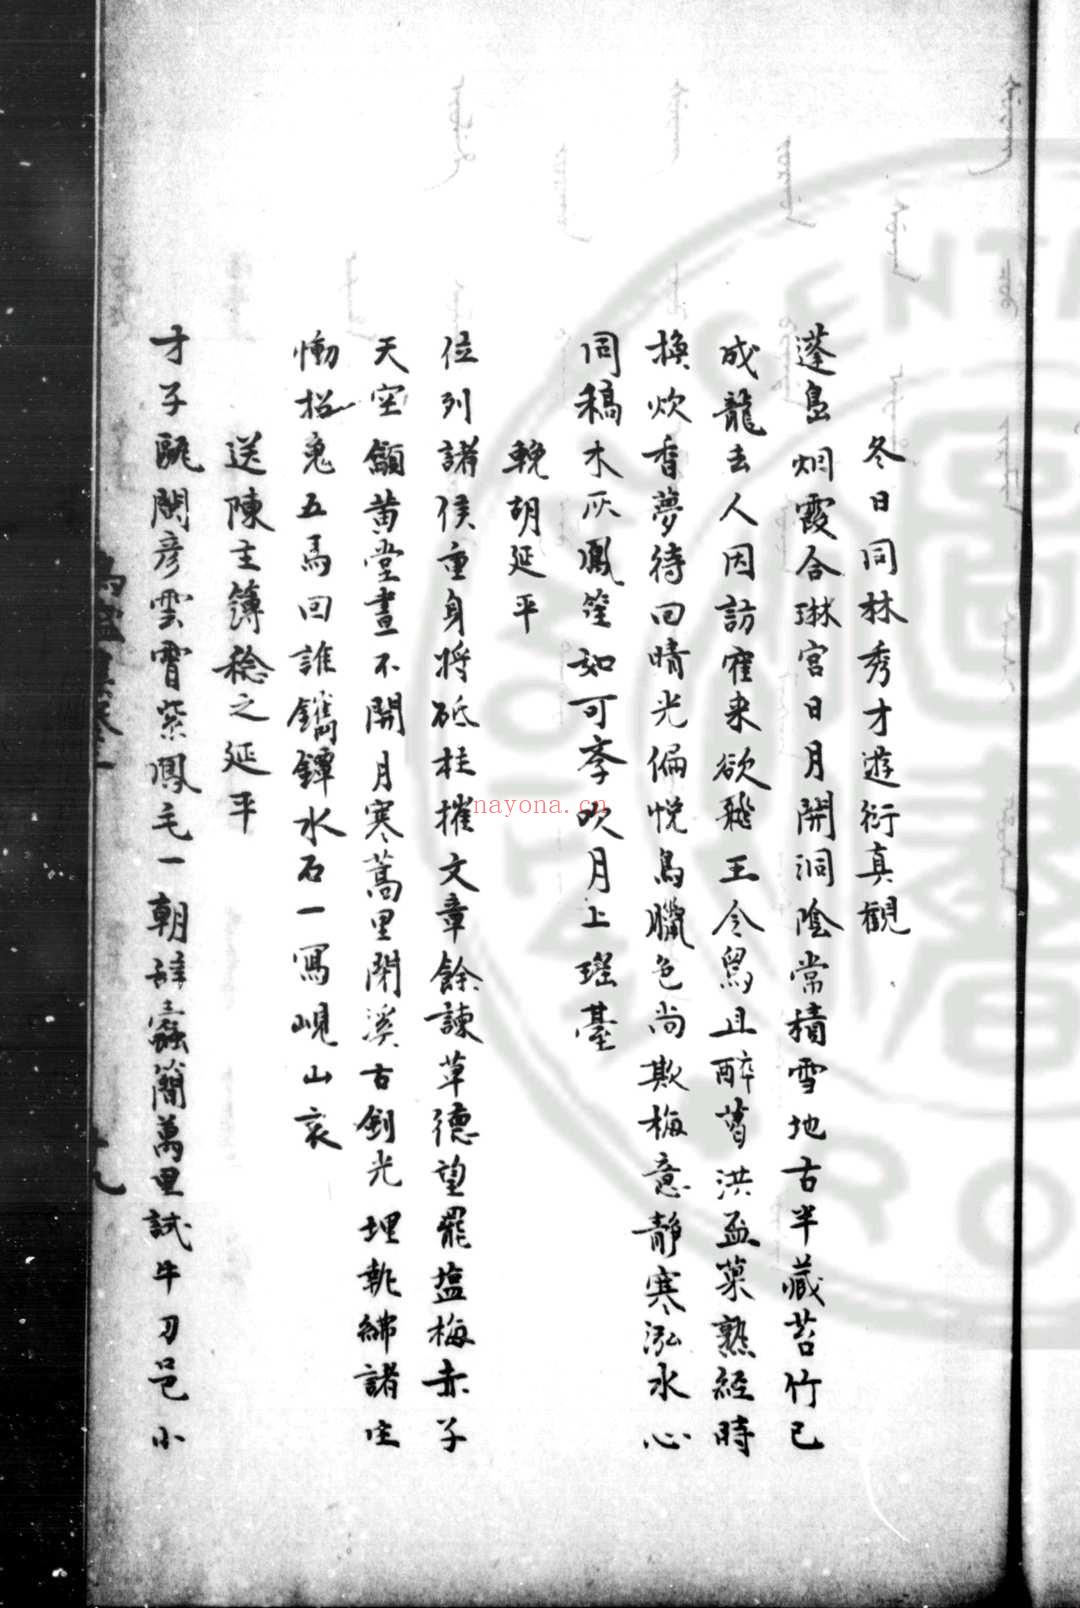 冬日同林秀才遊衍真觀
蓬島烟霞合琳宮日月開洞陰常積雪地古半藏苔竹已
成龍去人因訪寉来欲飛王令舄且醉葛洪盃菓熟經時
換炊香夢待回晴光偏悅鳥臘色尚欺梅意靜寒泓水心
同稿木灰鳳笙如可李吹月上瑶臺
輓胡延平
位列諸侯重身將砥柱摧文章餘諫草德望罷塩梅赤子
天空籲黄堂晝不開月寒蒿里閉溪古劍光埋執紼諸生
慟招䰟五馬回誰鐫鐔水石一寫峴山哀
送陳主簿稔之延平
才子甌閩彥雲霄紫鳳毛一朝辞蠹簡萬里試牛刀邑小
nayona.cn